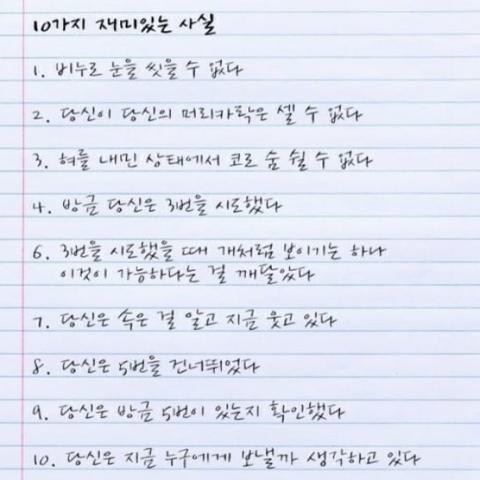 10가지 재미있는 사실
1. 비누로 눈을 씻을 수 없다
2. 당신이 당신의 머리카락은 셀 수 없다
3. 혀를 내민 상태에서 코로 숨 쉴 수 없다
4. 방금 당신은 3번을 시도했다
6. 3번을 시도했을 때 개처럼 보이기는 하나
이것이 가능하다는 걸 깨달았다
7. 당신은 속은 걸 알고 지금 웃고 있다
8. 당신은 5번을 건너뛰었다
9. 당신은 방금 5번이 있는지 확인했다
10. 당신은 지금 누구에게 보낼까 생각하고 있다